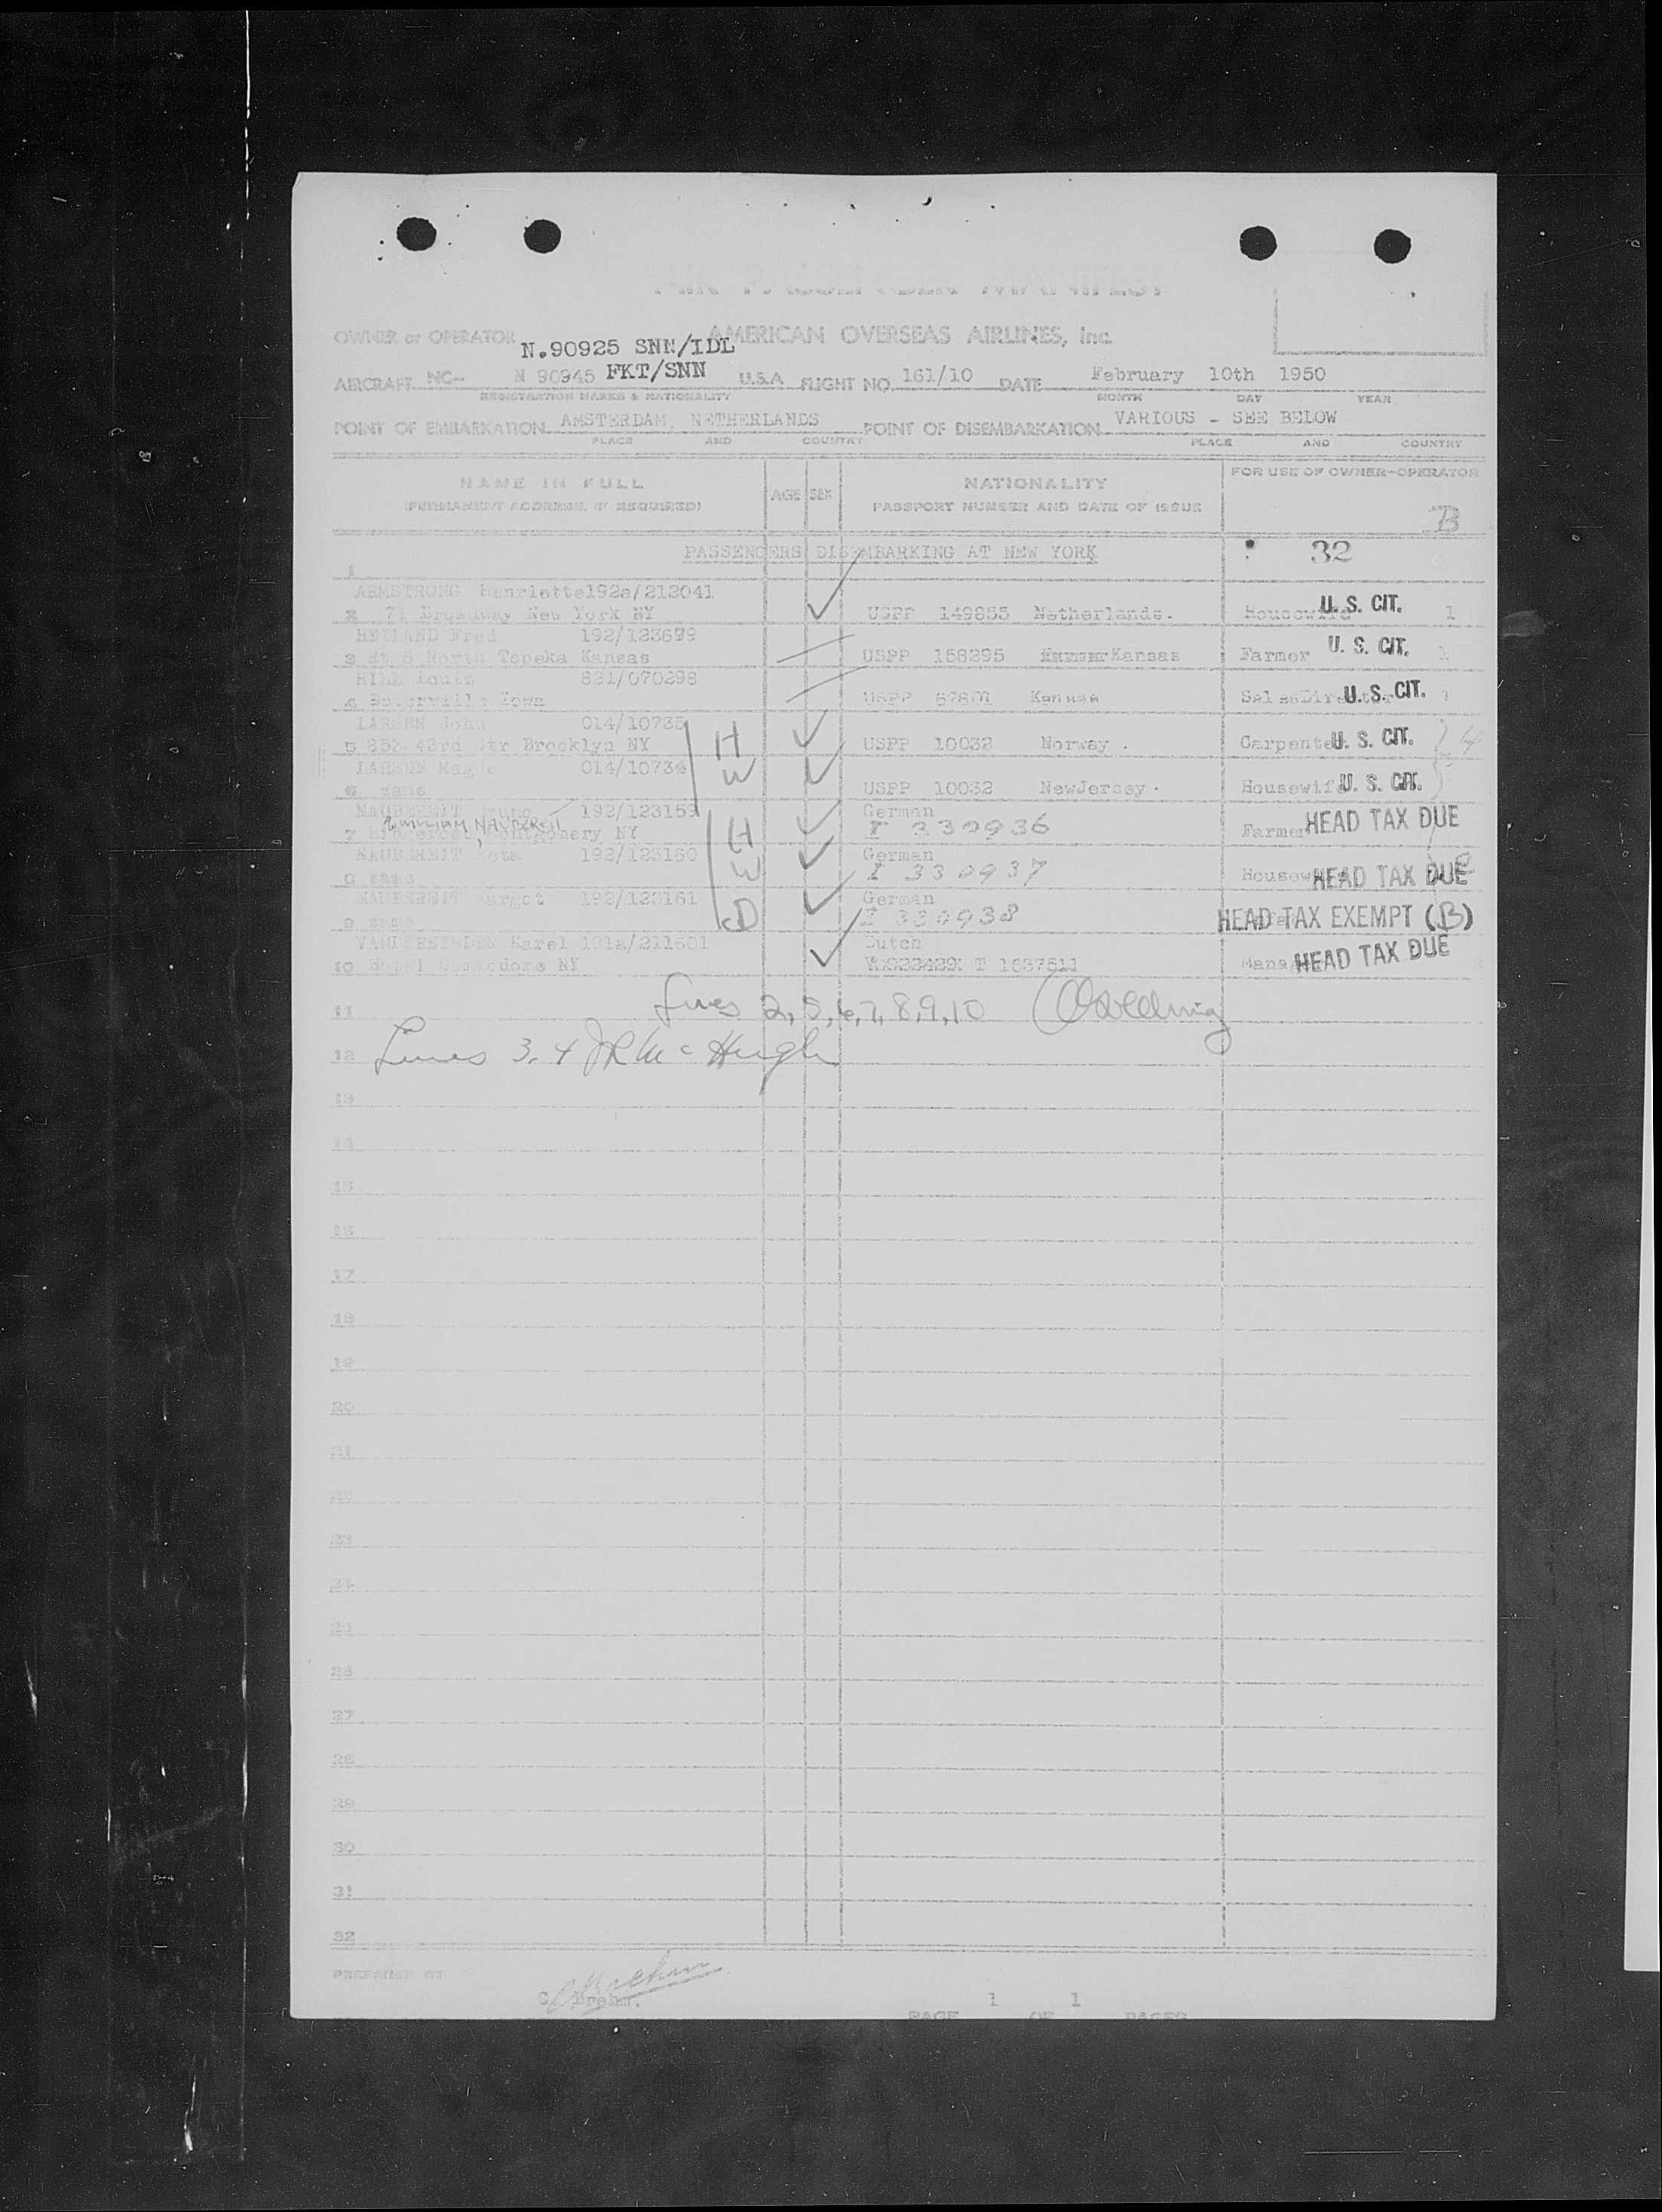 AIR PASSENGER MANIFEST
OWNER or OPERATOR AMERICAN OVERSEAS AIRLINES, Inc.
N.90925 SNN/IDL
AIRCRAFT NC- N 90945 FKT/SNN U.S.A FLIGHT NO. 161/10 DATE February 10th 1950
REGISTRATION MARKS & NATIONALITY MONTH DAY YEAR
POINT OF EMBARKATION AMSTERDAM, NETHERLANDS POINT OF DISEMBARKATION VARIOUS - SEE BELOW
PLACE AND COUNTRY PLACE AND COUNTRY
NAME IN FULL AGE SEX NATIONALITY FOR USE OF OWNER-OPERATOR
(PERMANENT ADDRESS, IF REQUIRED) PASSPORT NUMBER AND DATE OF ISSUE
B
PASSENGERS DISEMBARKING AT NEW YORK 32
1
ARMSTRONG Henriette 192a/212041
2 71 Broadway New York NY USPP 149855 Netherlands. Housewife U. S. CIT. 1
HEILAND Fred 192/123699
3 Rt 6 North Topeka Kansas USPP 158295 Kansas Farmer U. S. CIT. 1
HILL Louis 821/070298
4 Iowa USPP Kansas Sales Director U. S. CIT. 1
LARSEN John 014/10735 H
5 852 43rd Str Brooklyn NY USPP 10032 Norway . Carpenter U. S. CIT.
LARSEN 014/10734 W
6 same USPP 10032 NewJersey. Housewife U. S. CIT.
NAUBEREIT Bruno 192/123159 German
7 Montgomery NY H I 330936 Farmer HEAD TAX DUE
NAUBEREIT 192/123160 German
8 same W I 330937 Housewife HEAD TAX DUE
NAUBEREIT Margot 192/123161 German
9 same D I 330938 HEAD TAX EXEMPT (B)
Karel 191a/211601 Dutch
10 Hotel Commodore NY T 1637511 HEAD TAX DUE
11 Lines 2, 5, 6, 7, 8, 9, 10
12 Lines 3. 4 JR McHugh
13
14
15
16
17
18
19
20
21
22
23
24
25
26
27
28
29
30
31
32
PREPARED BY
C. Brehm.
PAGE 1 OF 1 PAGES